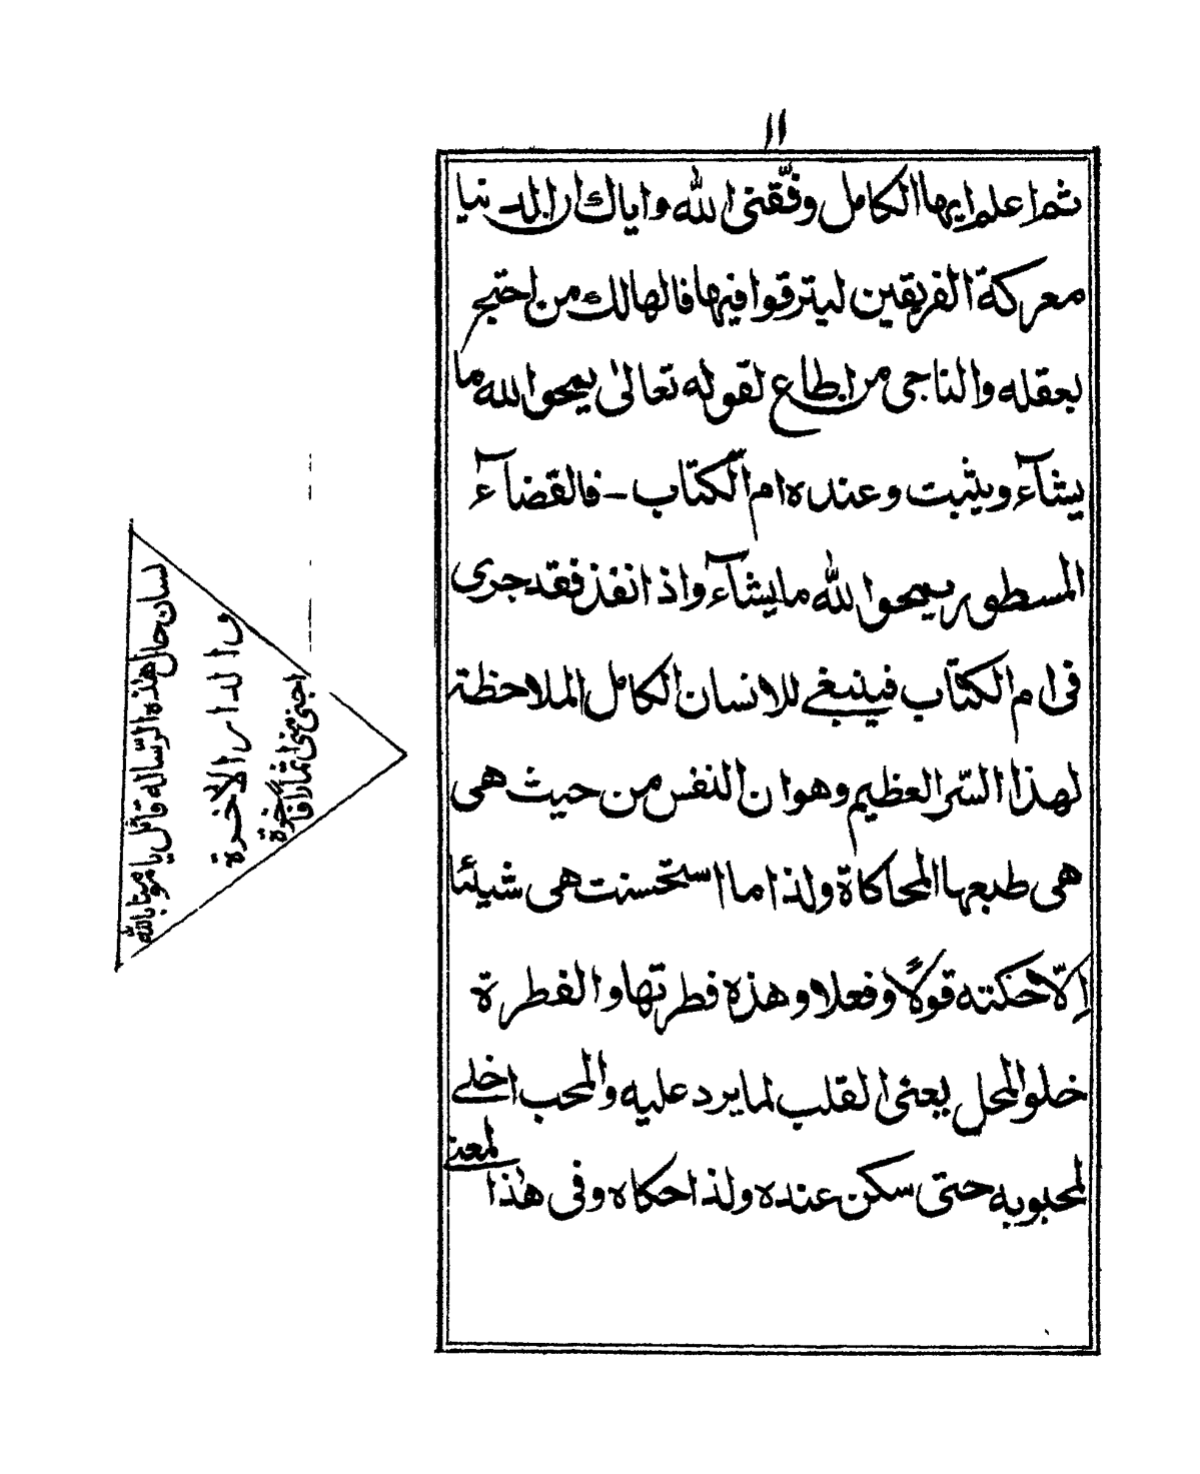 ١١
ثم اعلم ايها الكامل وفّقنى الله واياك ان الدنيا
معركة الفريقين ليترقوا فيها فالهالك من احتج
بعقله والناجى من اطاع لقوله تعالىٰ يمحوا لله ما
يشآء ويثبت وعنده ام الكتاب - فالقضآء
المسطور يمحوا لله ما يشآء واذا نفذ فقد جرى
فى ام الكتاب فينبغى للانسان الكامل الملاحظة
لهذا السّر العظيم وهو ان النفس من حيث هى
هى طبعها المحاكاة ولذا ما استحسنت هى شيئًا
اِلّا حكته قولًا وفعلا وهذه فطرتها والفطرة
خلو المحل يعنى القلب لما يرد عليه والمحب اخلى
لمحبوبه حتى سكن عنده ولذا حكاه وفى هٰذا المعنى
لسان حال هٰذه الرّساله قائل يا مومنا بالله
والدار الاخرة
اجنى منى اثمارا فاخرة